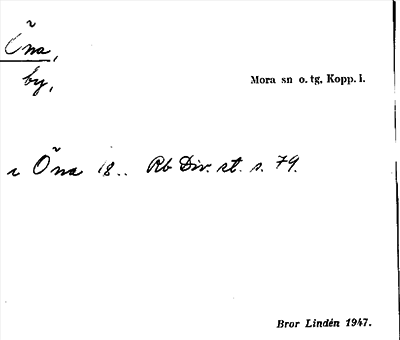 Õna,
by,
Mora sn o. tg, Kopp. l.
i Õna 18.. Rb Div. st. s. 79.
Bror Lindén 1947.